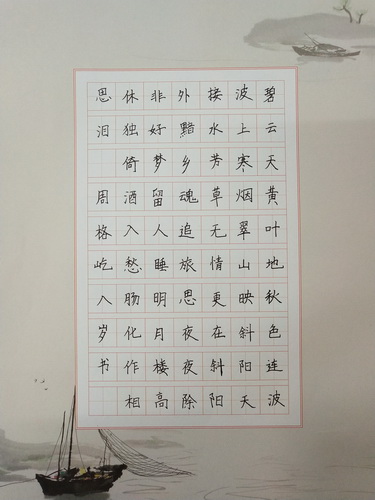 碧云天黄叶地秋色连波
波上寒烟翠山映斜阳天
接水芳草无情更在斜阳
外黯乡魂追旅思夜夜除
非好梦留人睡明月楼高
休独倚酒入愁肠化作相
思泪 周格屹八岁书